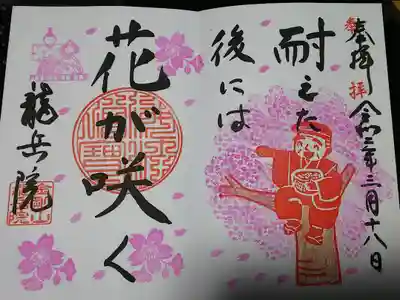 奉拝
令和二年三月十八日
耐えた
後には
花が咲く
龍兵院